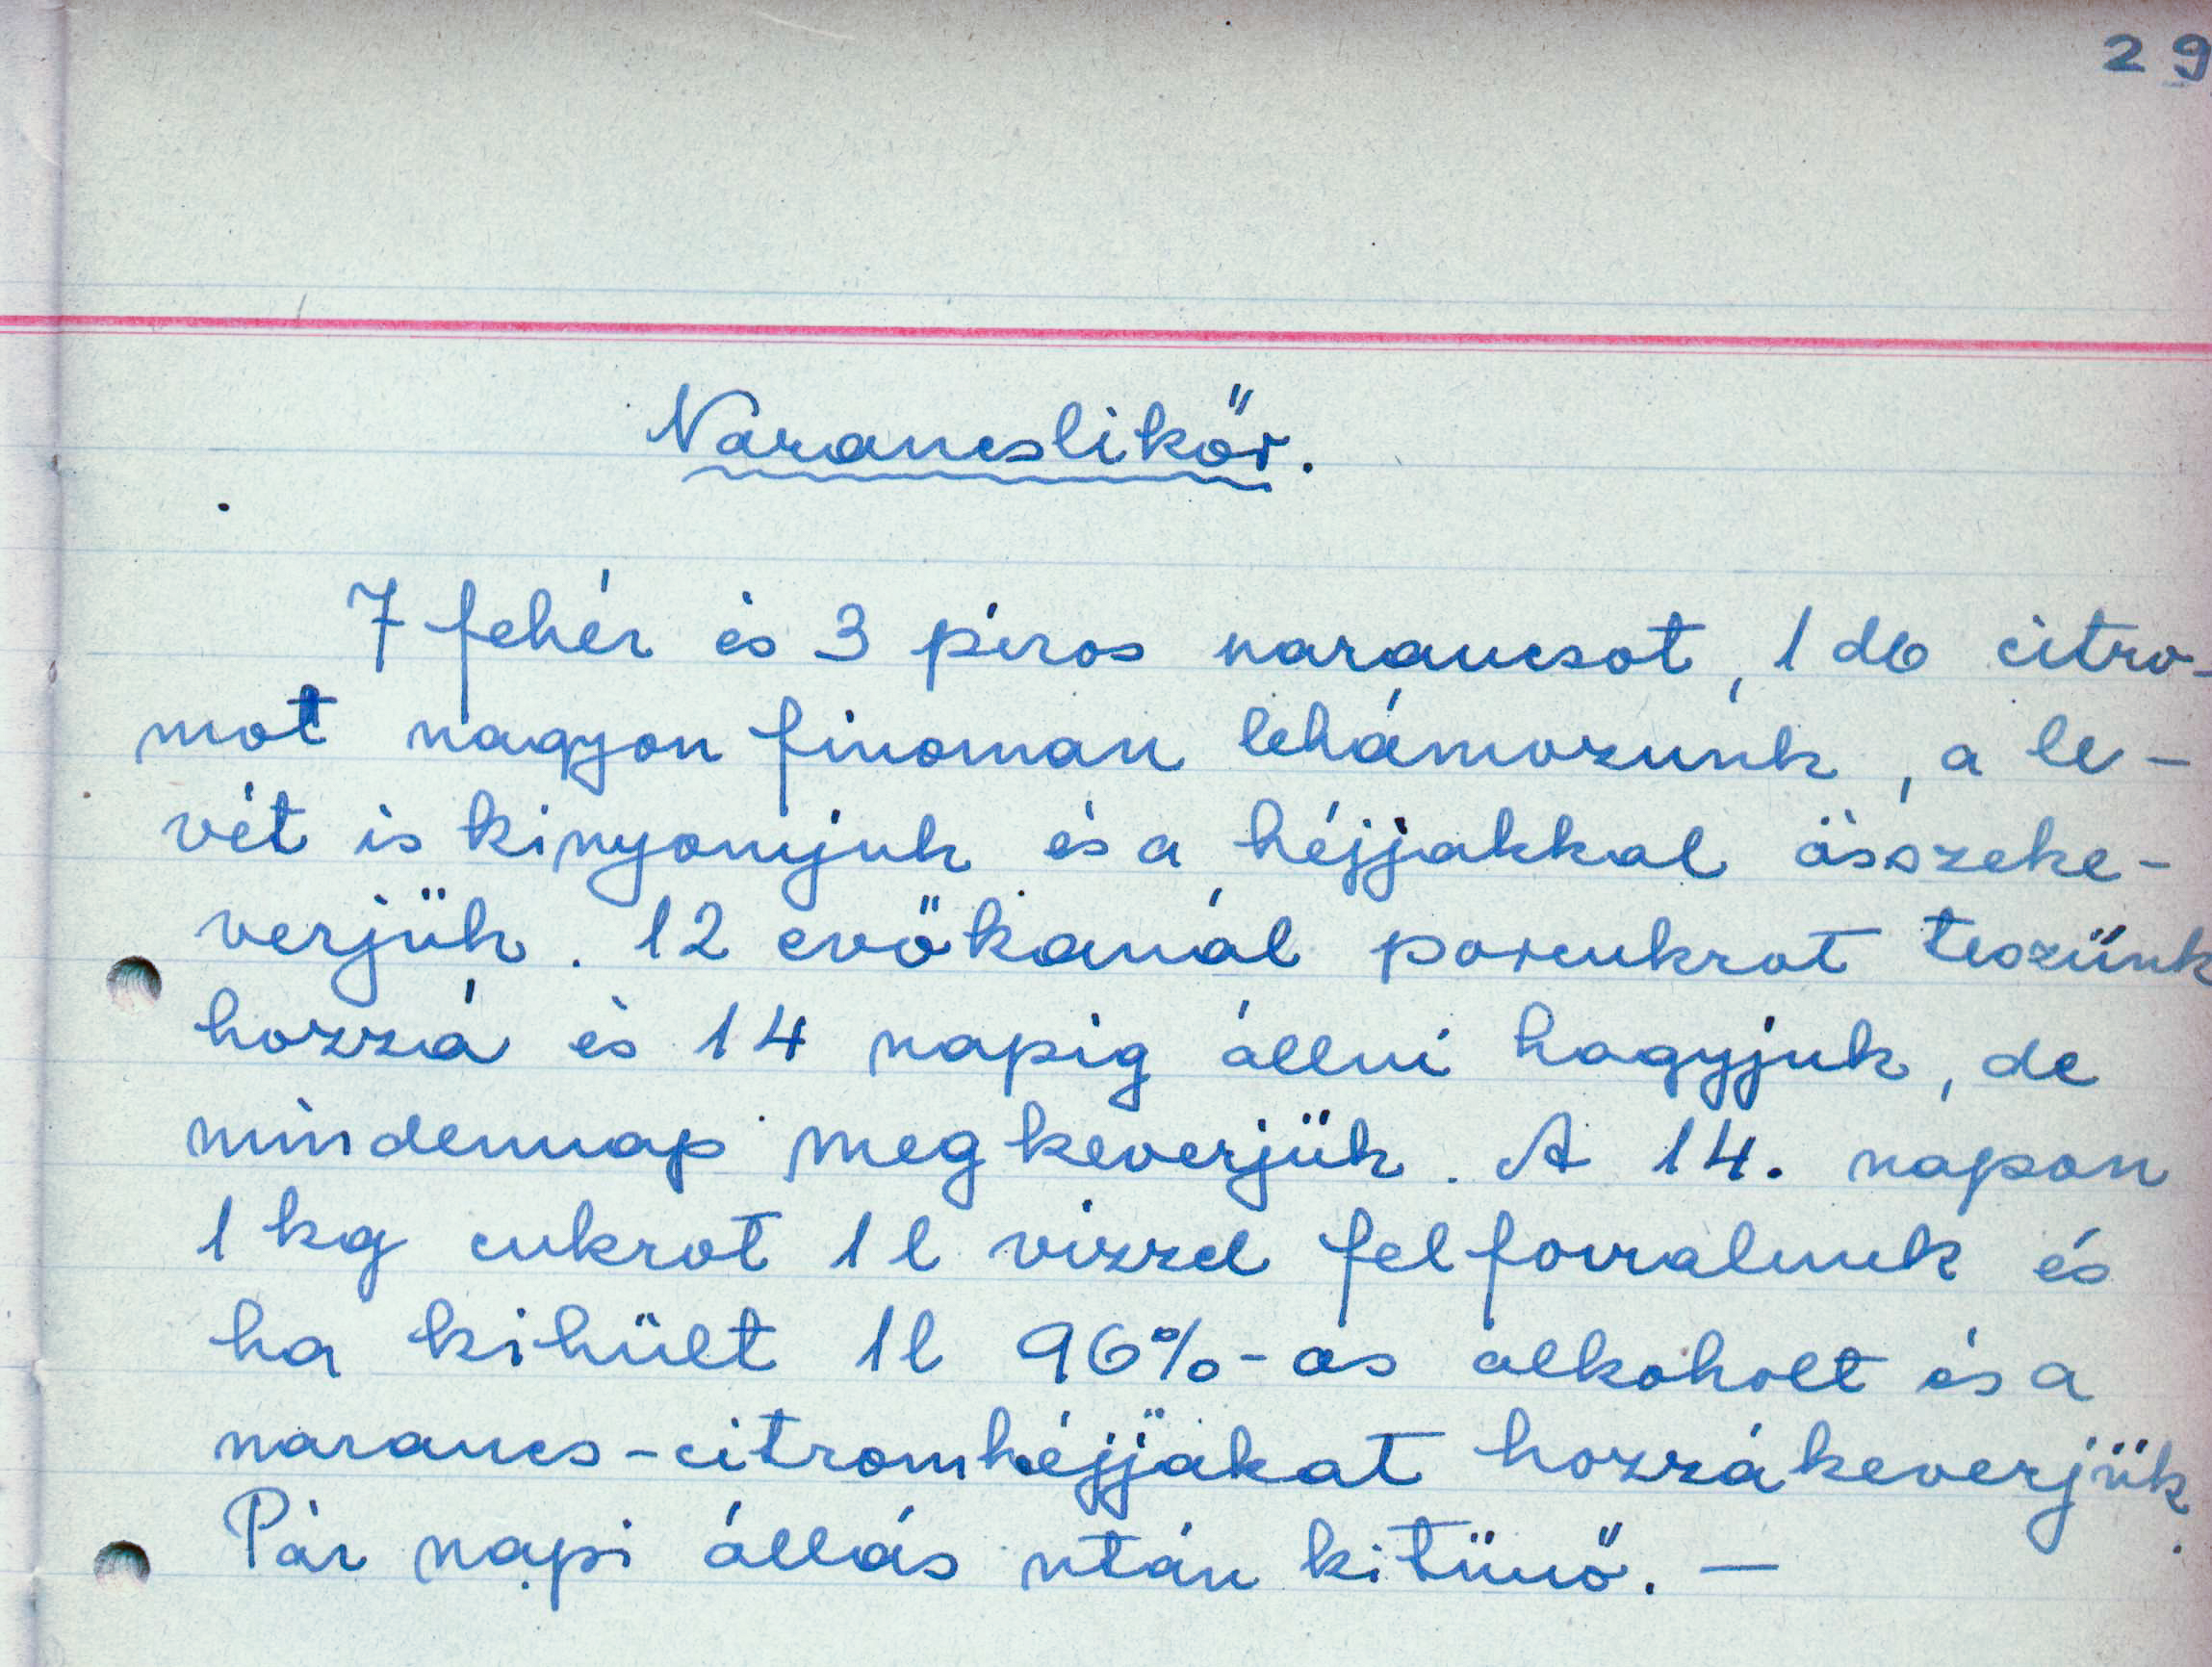 29
Narancslikőr.
7 fehér és 3 piros narancsot, 1 db citro-
mot nagyon finoman lehámozunk, a le-
vét is kinyomjuk és a héjjakkal össszeke-
verjük. 12 evőkanál porcukrot teszünk
hozzá és 14 napig állni hagyjuk, de
mindennap megkeverjük. A 14. napon
1 kg cukrot 1 l vizzel felforralunk és
ha kihült 1 l 96%-os alkoholt és a
narancs-citromhéjjakat hozzákeverjük.
Pár napi állás után kitünő. —